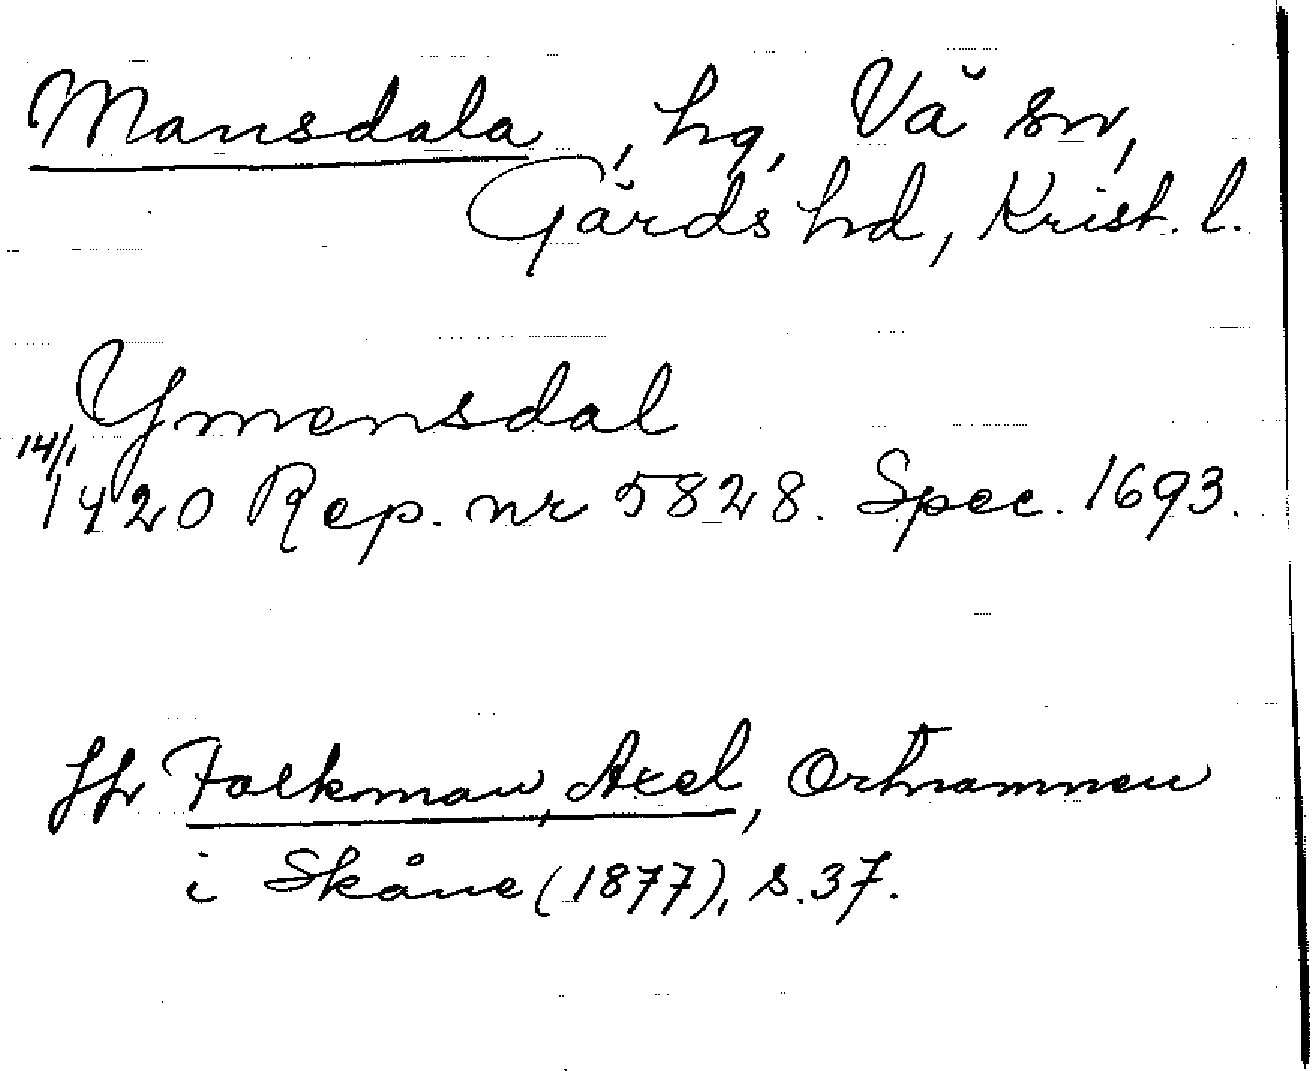 Mansdala, hg, Vä sn,
Gärds hd, Krist. l.
Ymensdal
14/1 1420 Rep. nr 5828. Spec. 1693.
Jfr Falkman, Axel, Ortnamnen
i Skåne (1877), s. 37.